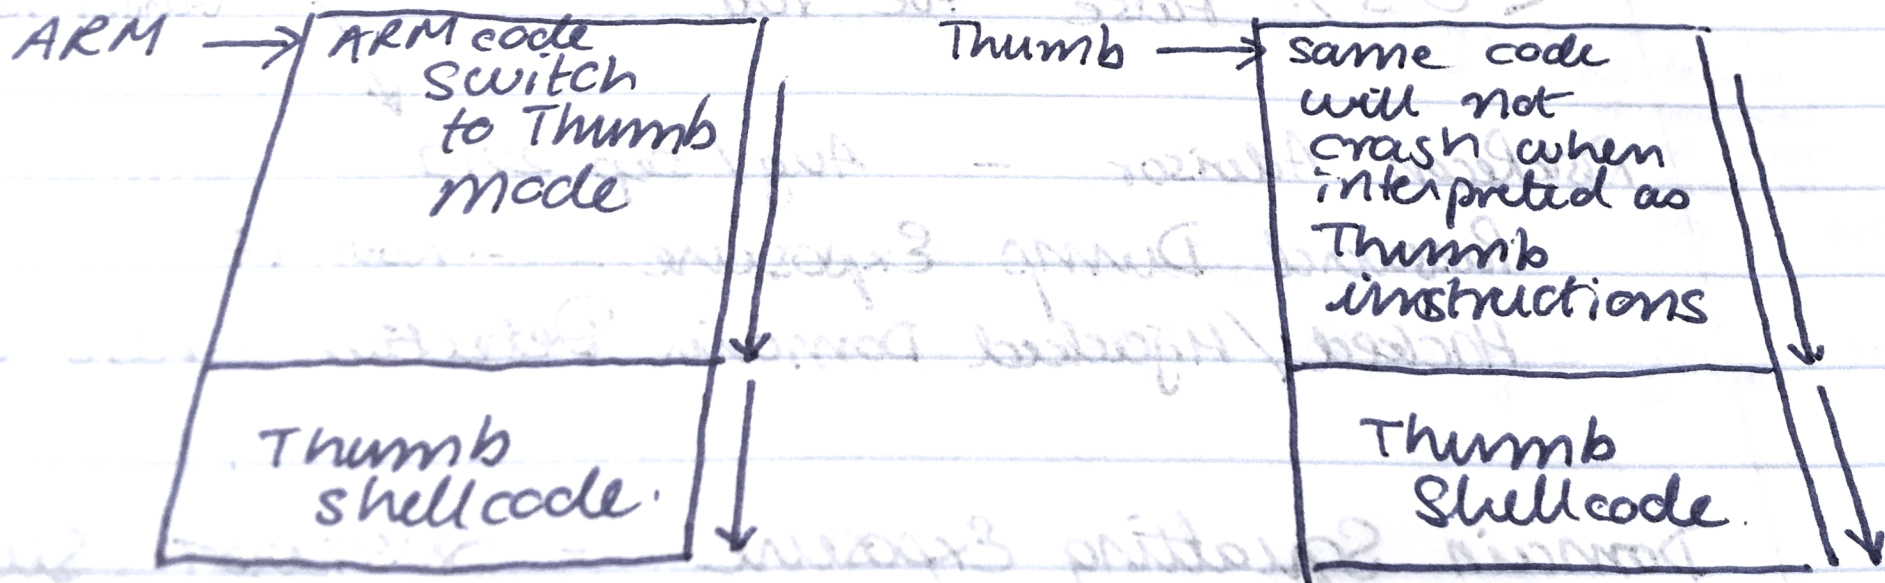 ARM → ARM code
switch
to Thumb
mode
Thumb
shellcode.
Thumb → same code
will not
crash when
interpreted as
Thumb
instructions
Thumb
Shellcode.